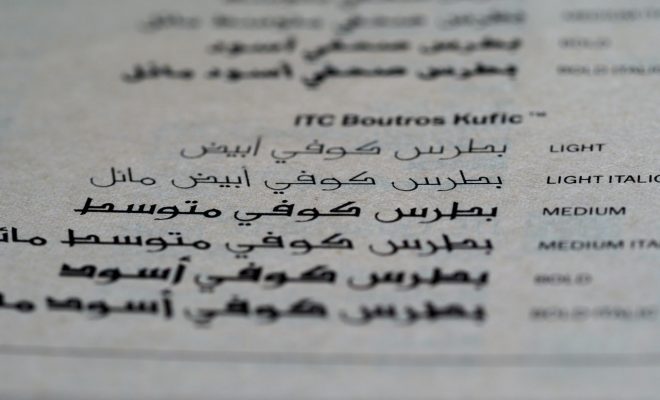 MEDIUM
بطرس صحفي أسود BOLD
بطرس صحفي أسود مائل BOLD ITALIC
ITC Boutros Kufic™
بطرس كوفي أبيض LIGHT
بطرس كوفي أبيض مائل LIGHT ITALIC
بطرس كوفي متوسط MEDIUM
بطرس كوفي متوسط مائ MEDIUM ITA
بطرس كوفي أسود BOLD
بطرس كوفي أسود ما BOLD ITALIC